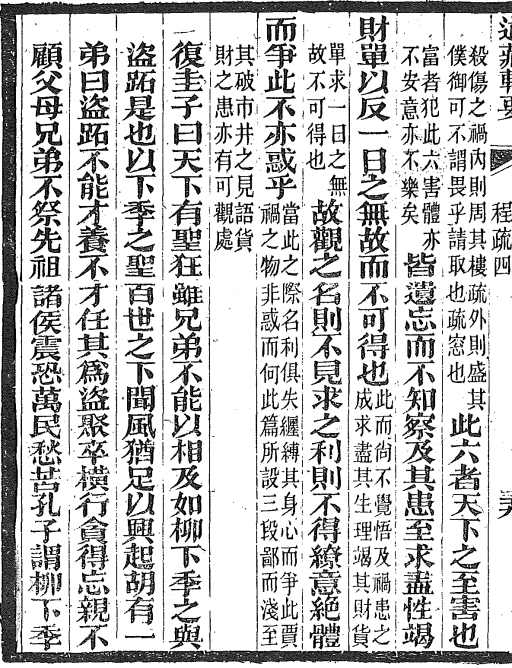 道藏輯要 程疏四
殺傷之禍內則周其樓疏外則盛其
僕御可不謂畏乎請取也疏窓也
此六者天下之至害也
富者犯此六害體亦
不安意亦不樂矣
皆遺忘而不知察及其患至求盡性竭
財單以反一日之無故而不可得也
此而尙不覺悟及禍患之
成求盡其生理竭其財貨
單求一日之無
故不可得也
故觀之名則不見求之利則不得繚意絶體
而爭此不亦惑乎
當此之際名利俱失纏縛其身心而爭此賈
禍之物非惑而何此篇所設三段鄙而淺至
其破市井之見語貨
財之患亦有可觀處
復圭子曰天下有聖狂雖兄弟不能以相及如柳下季之與
盜跖是也以下季之聖百世之下聞風猶足以興起胡有一
弟曰盜跖不能才養不才任其爲盜聚卒橫行貪得忘親不
顧父母兄弟不祭先祖諸侯震恐萬民愁苦孔子謂柳下季